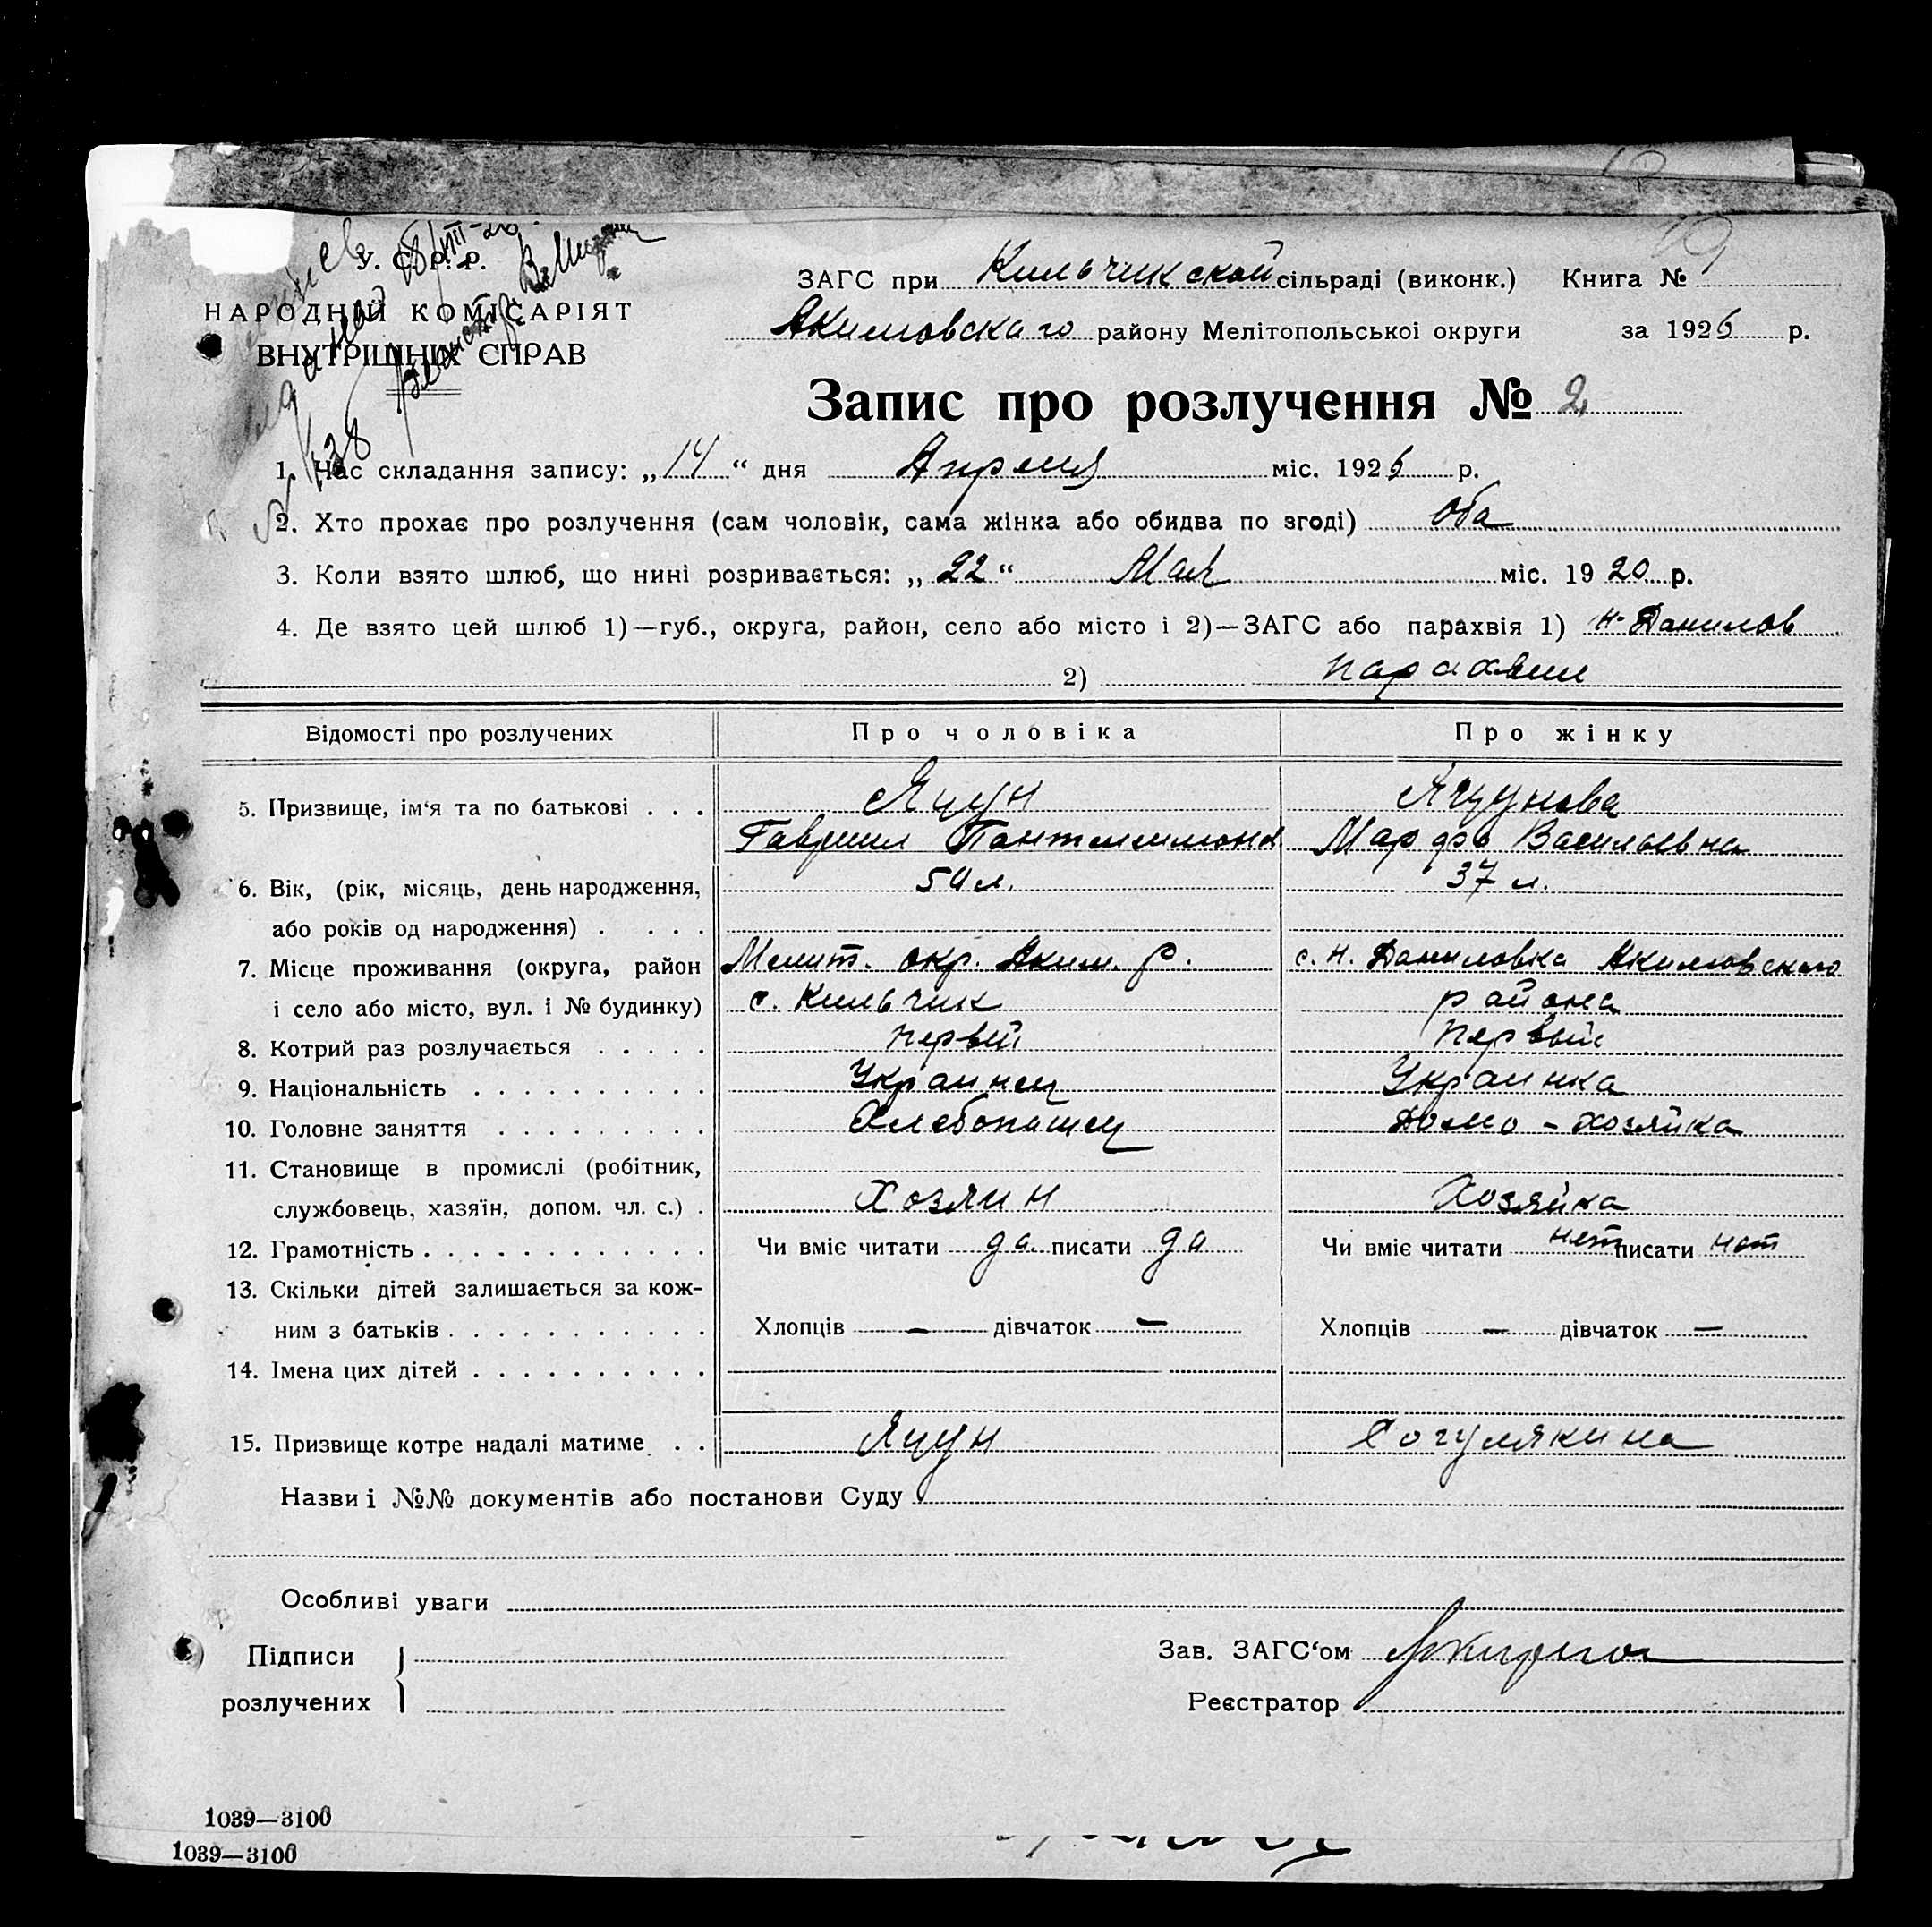 У. С. Р. Р.
НАРОДНІЙ КОМІСАРІЯТ
ВНУТРІШНІХ СПРАВ
ЗАГС при Кильчикской сільраді (виконк.) Книга №
Акимовскаго району Мелітопольської округи за 1926 р.
Запис про розлучення № 2
1. Час складання запису: „14“ дня Апреля міс. 1926 р.
2. Хто прохає про розлучення (сам чоловік, сама жінка або обидва по згоді) оба
3. Коли взято шлюб, що нині розривається: „22“ Мая міс. 1920 р.
4. Де взято цей шлюб 1)—губ., округа, район, село або місто і 2)—ЗАГС або парахвія 1) н-Данилов
2) парахвии
Відомості про розлучених Про чоловіка Про жінку
5. Призвище, ім‘я та по батькові . . . Яцун Яцунова
Гавриил Пантелимона Марфа Васильевна
6. Вік, (рік, місяць, день народження, 50 л. 37 л.
або років од народження) . . . .
7. Місце проживання (округа, район Мелит. окр. Аким. р. с. Н. Даниловка Акимовского
і село або місто, вул. і № будинку) с. Кильчик района
8. Котрий раз розлучається . . . . . первый первый
9. Національність . . . . . . . . . . Украинец Украинка
10. Головне заняття . . . . . . . . . Хлебопашец Домо-хозяйка
11. Становище в промислі (робітник,
службовець, хазяїн, допом. чл. с.) . Хозяин Хозяйка
12. Грамотність . . . . . . . . . . . . Чи вміє читати да писати да Чи вміє читати нет писати нет
13. Скільки дітей залишається за кож-
ним з батьків . . . . . . . . . . . Хлопців — дівчаток — Хлопців — дівчаток —
14. Імена цих дітей . . . . . . . . . .
15. Призвище котре надалі матиме . . Яцун Согулякина
Назви і №№ документів або постанови Суду
Особливі уваги
Підписи
розлучених
Зав. ЗАГС‘ом
Реєстратор
1039—3100
1039—3100